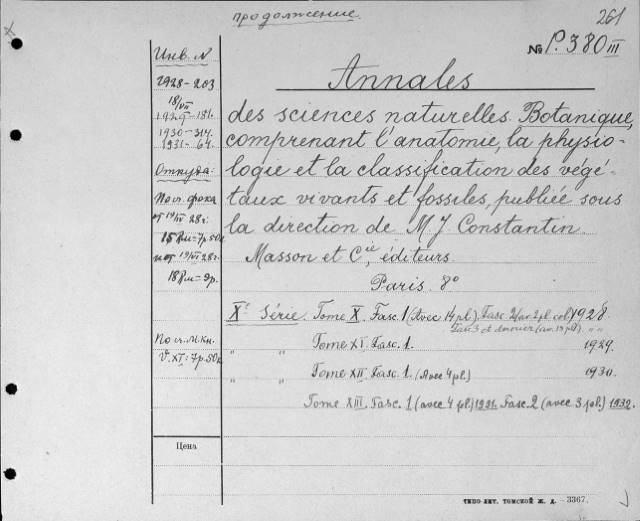 продолжение.
261
№ P.380 III
Инв. N
1928-203
18/VII
1929-181.
1930-314.
1931-64.
Откуда:
По сч. фока
от 19/VI 28 г.
15 Rм=7р.50к
и от 19/VI 28 г.
18 Rм=9р.
По сч. М.Кн.
V. XI: 7р.50к
Цена
Annales
des sciences naturelles. Botanique,
comprenant l'anatomie, la physio-
logie et la classification des végé-
taux vivants et fossiles, publiée sous
la direction de M J. Constantin.
Masson et Cie, éditeurs.
Paris. 8°
Xe Série. Tome X. Fasc. 1 (Avec 14 pl.) Fasc. 2 (av. 2 pl. col.) 1928.
Fasc 3 et dernier (av. 19 pl.) " "
" " Tome XI. Fasc. 1. 1929.
" " Tome XII. Fasc. 1. (Avec 4 pl.) 1930.
Tome XIII. Fasc. 1 (avec 4 pl.) 1931. Fasc. 2 (avec 3 pl.) 1932.
ТИПО-ЛИТ. ТОМСКОЙ Ж. Д. - 3367.